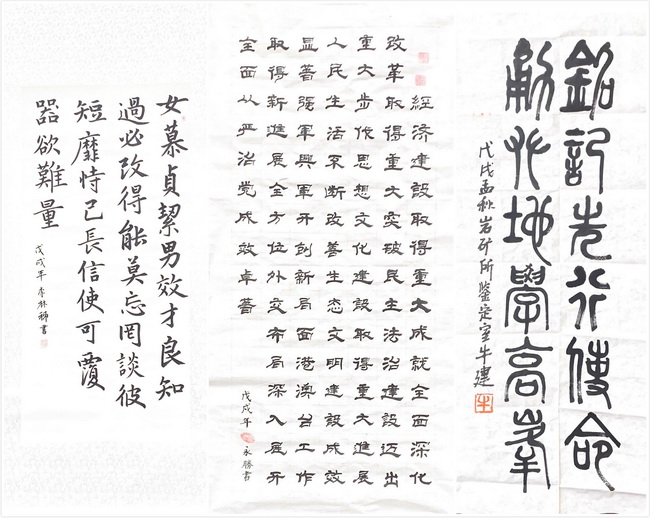 女慕貞絜男效才良知
過必改得能莫忘罔談彼
短靡恃己長信使可覆
器欲難量
戊戌年 李林書
經濟建設取得重大成就全面深化
改革取得重大突破民主法治建設迈出
重大步伐思想文化建設取得重大進展
人民生活不断改善生态文明建設成效
显著强軍興軍开創新局面港澳台工作
取得新進展全方位外交布局深入展开
全面从严治党成效卓著
戊戌年
永勝書
銘記先行使命
勇攀地學高峯
戊戌孟秋岩矿所鉴定室牛建
牛